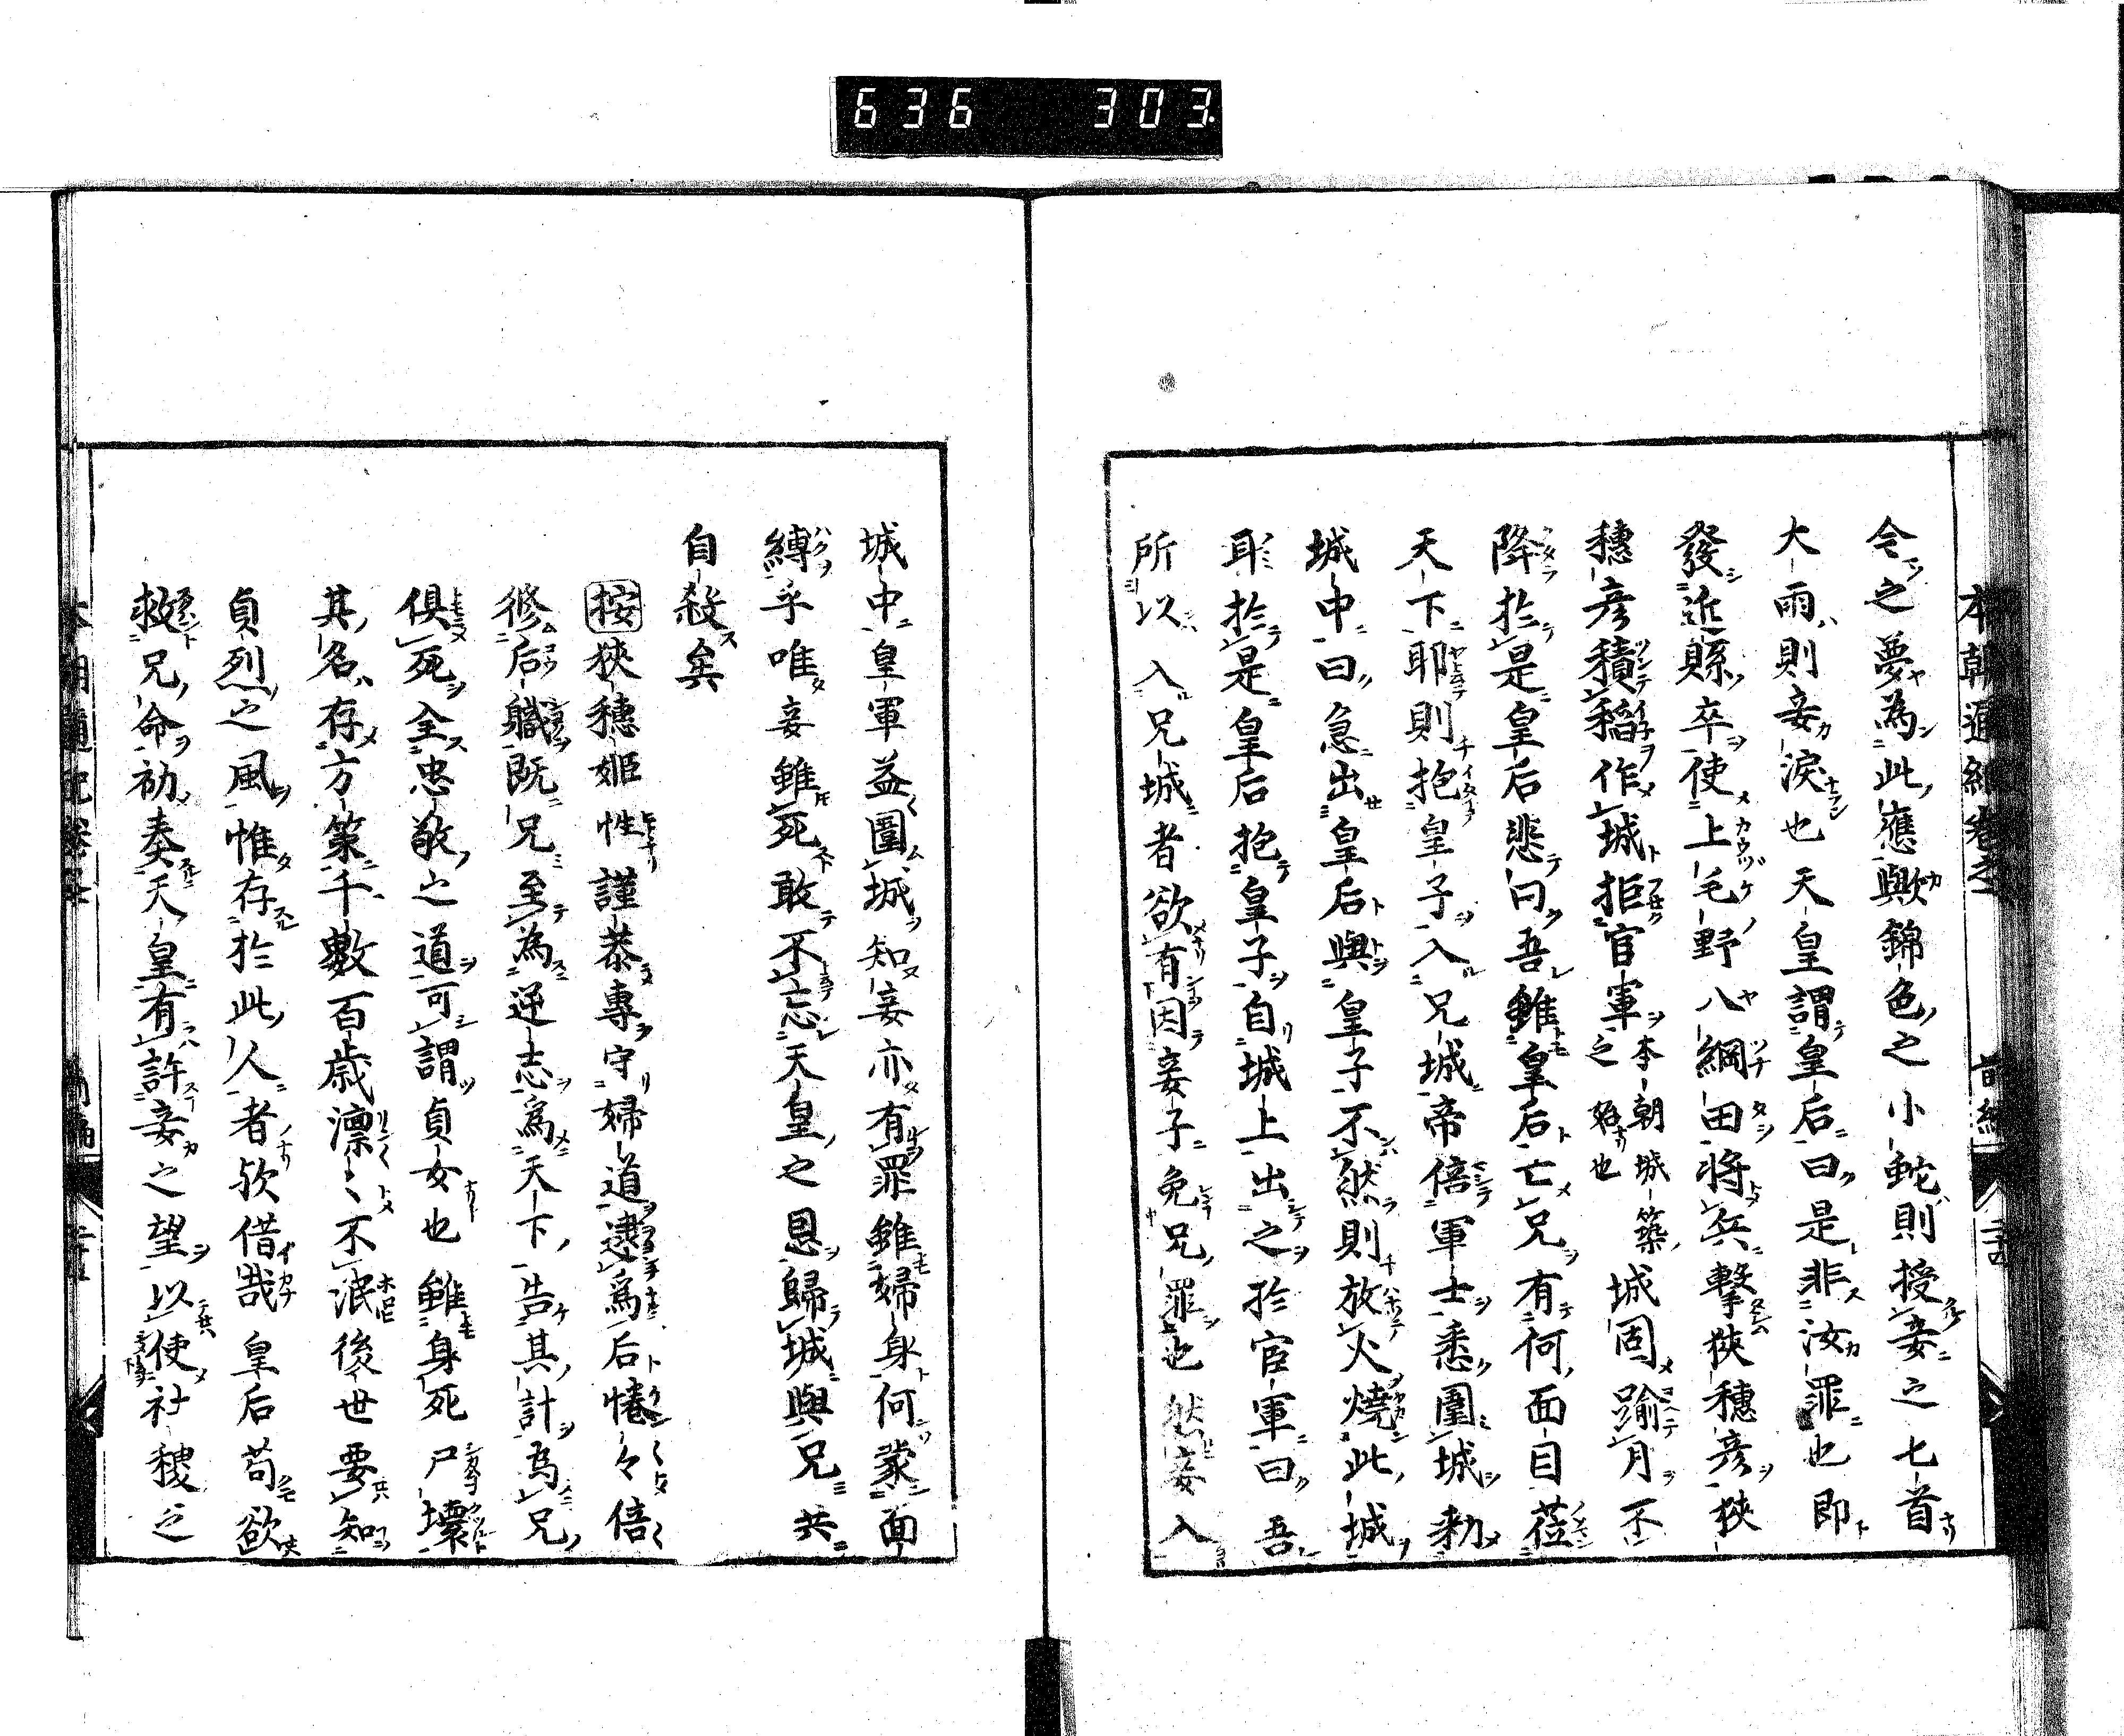 636 303.
本朝通紀卷之二 前編 二十四
令之夢為此應歟錦色之小蛇則授妾之七首
大雨則妾淚也天皇謂皇后曰是非汝罪也即
發近縣卒使上毛野八綱田将兵撃狹穗彦狹
穗彦積稻作城拒官軍 本朝城築之始也 城固踰月不
降於是皇后悲曰吾雖皇后亡兄有何面目莅
天下耶則抱皇子入兄城帝倍軍士悉圍城勅
城中曰急出皇后與皇子不然則放火燒此城
耳於是皇后抱皇子自城上出之於官軍曰吾
所以入兄城者欲有因妾子免兄罪也然妾入
城中皇軍益圍城知妾亦有罪雖婦身何蒙面
縛乎唯妾雖死敢不忘天皇之恩歸城與兄共
自殺矣
按狹穗姬性謹恭專守婦道逮為后惓々倍
修后職既兄至為逆志為天下告其計為兄
俱死全忠敬之道可謂貞女也雖身死尸壞
其名存方策千數百歲凛〻不泯後世要知
貞烈之風惟存於此人者欤借哉皇后苟欲
救兄命初奏天皇有許妾之望以使社稷之